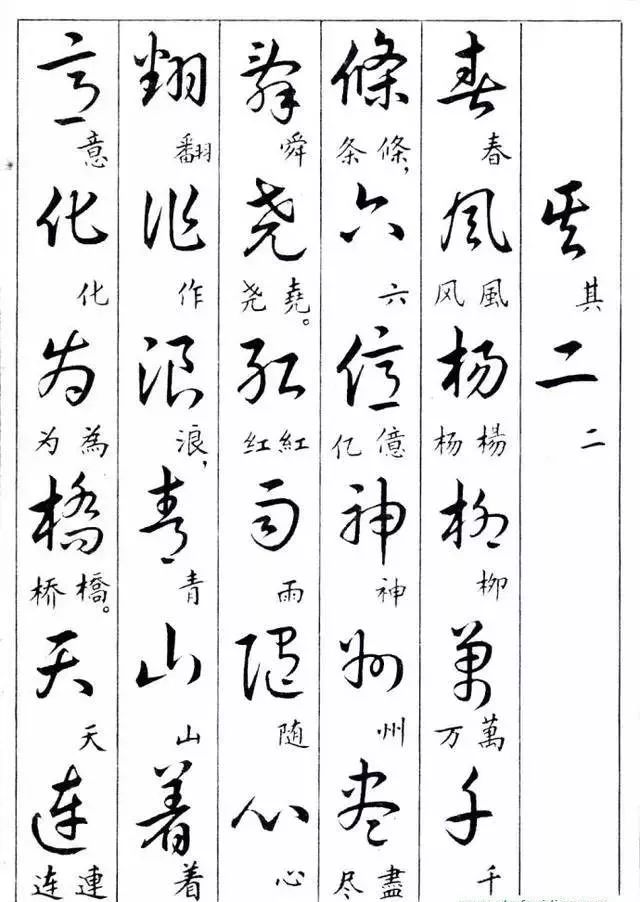 其二
其二
春风杨柳萬千
春風风楊杨柳萬万千
條六億神州尽
條，条六億亿神州盡尽
舜尧红雨随心
舜堯。尧紅红雨随心
翻作浪青山着
翻作浪，青山着
意化为橋天连
意化為为橋。桥天連连